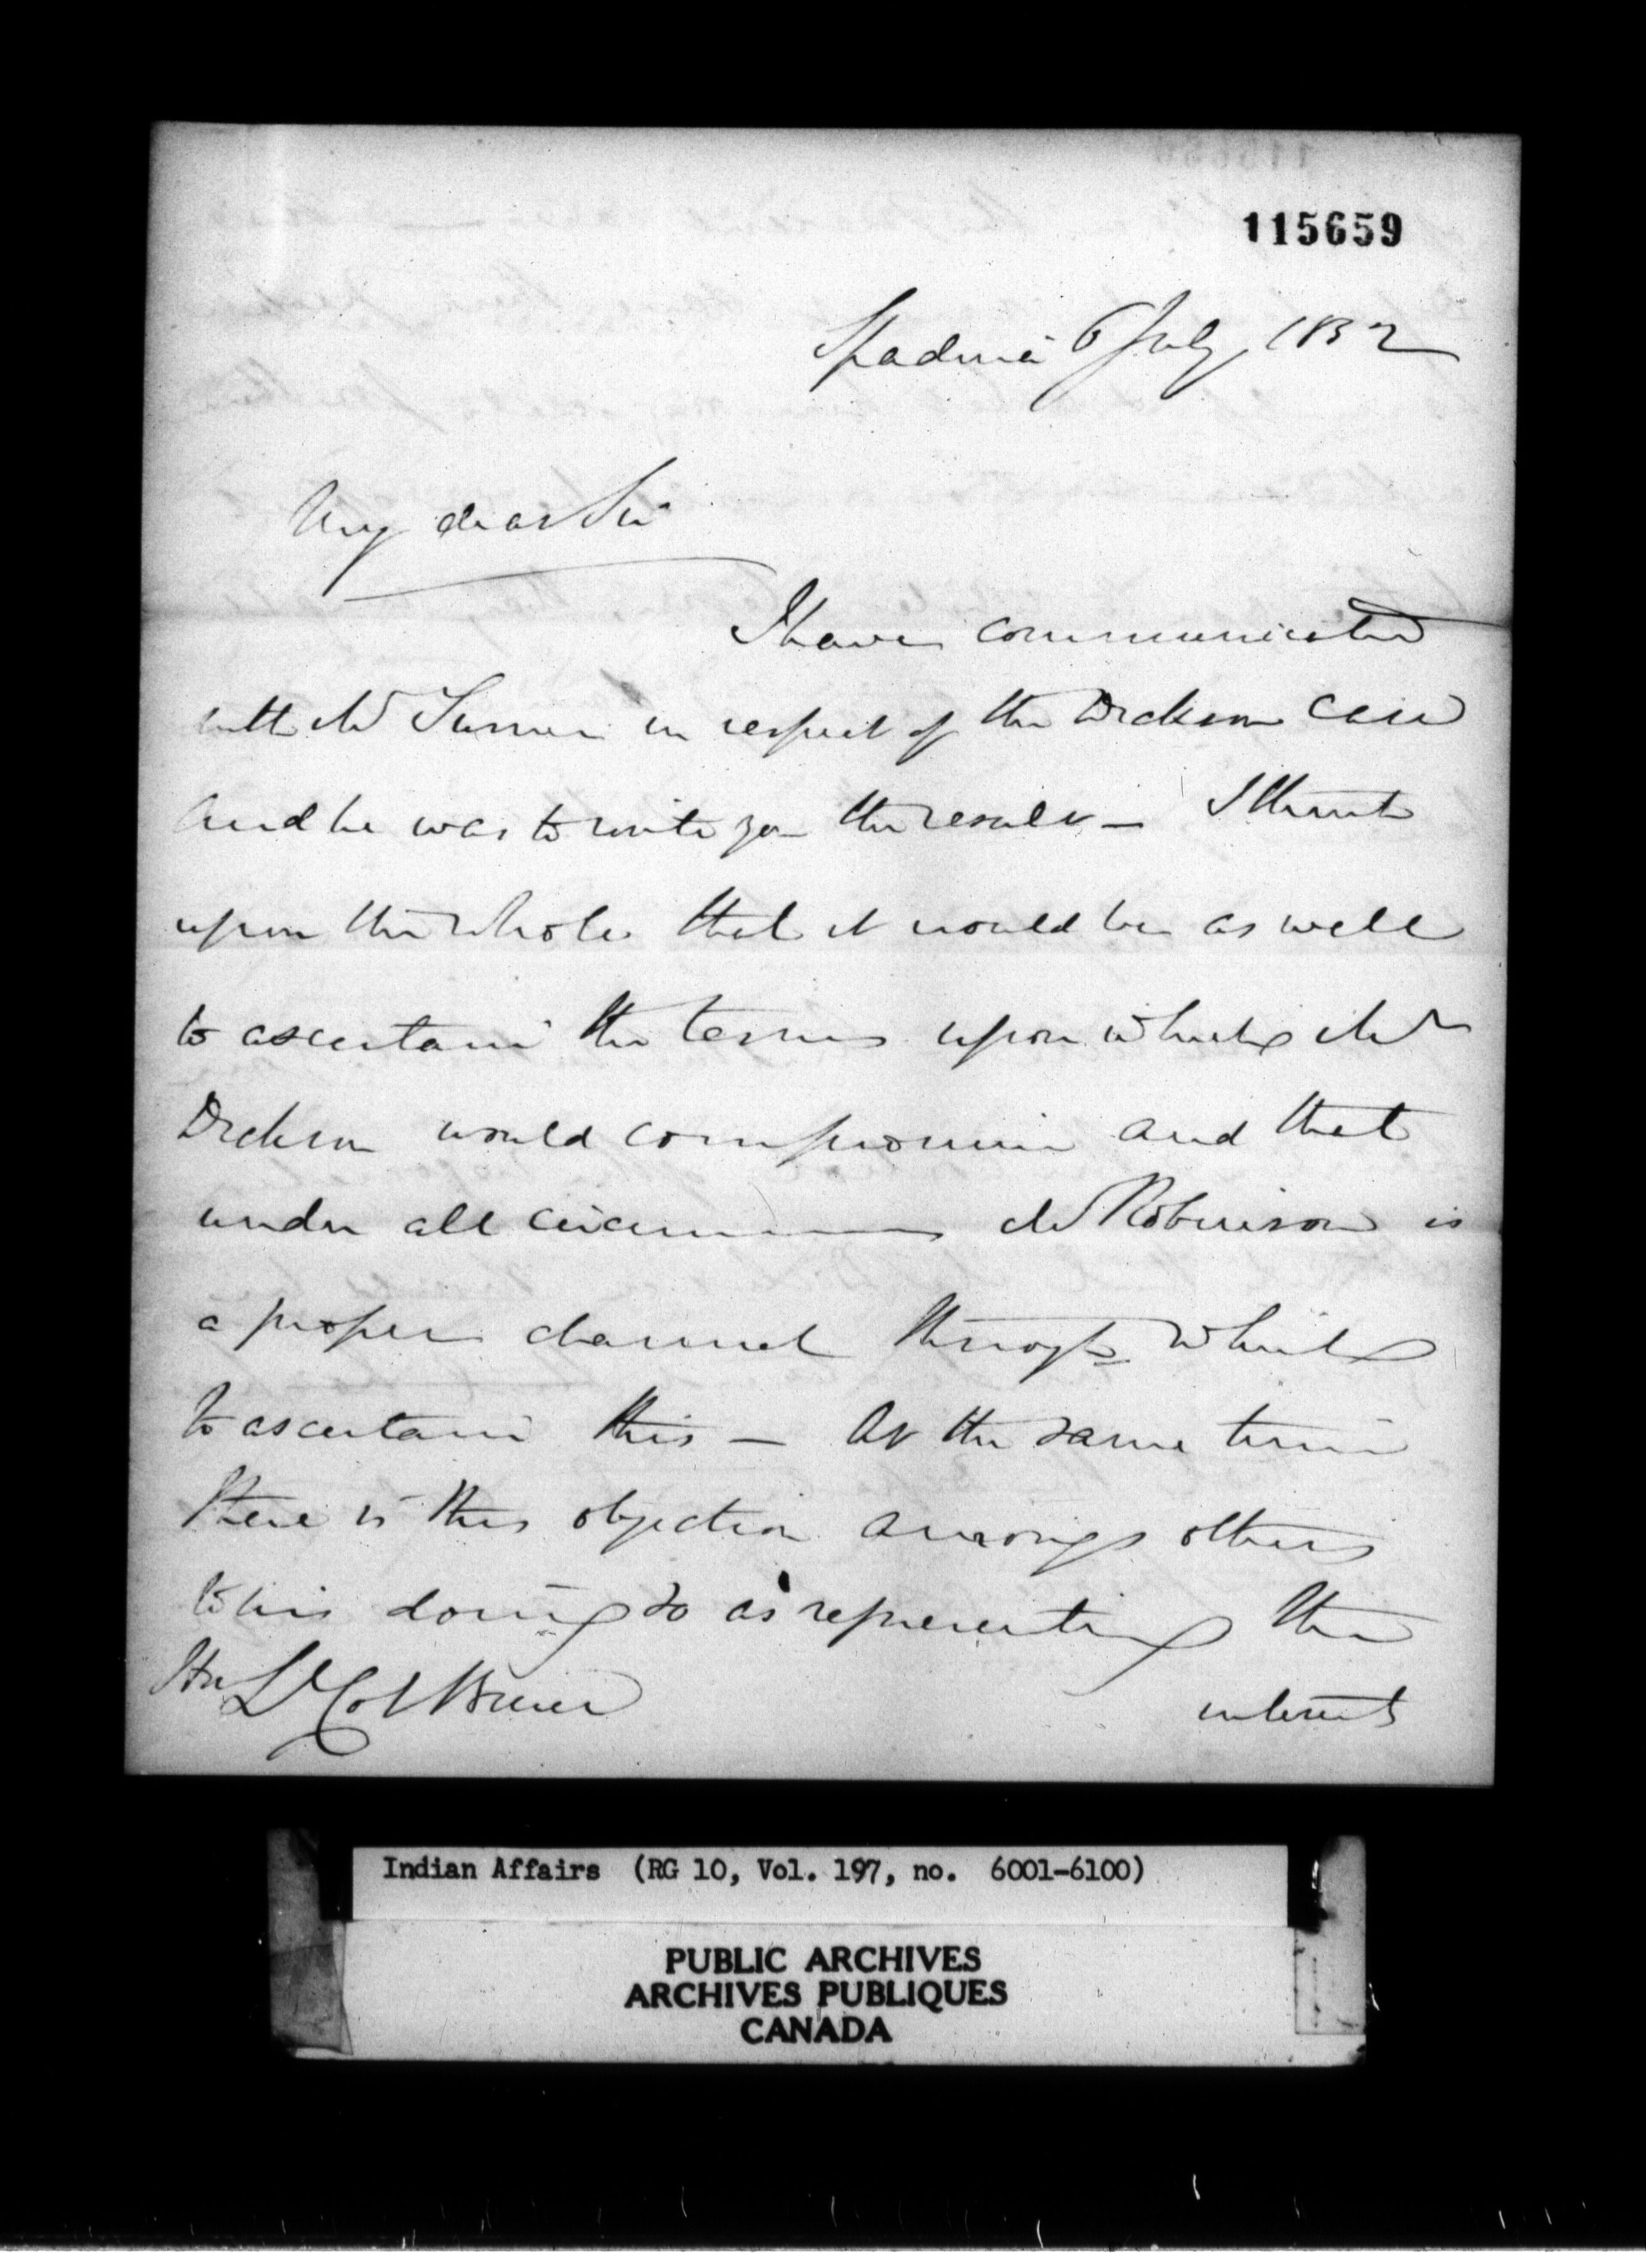 115659
Spadina 6 July 1852
My dear Sir
I have communicated
with Mr Turner in respect of the Dickson Case
and he was to write you the result — I think
upon the whole that it would be as well
to ascertain the terms upon which Mr
Dickson would compromise and that
under all circum Mr Robinson is
a proper channel through which
to ascertain this — At the same time
there is this objection amongst others
to his doing so as representing the
Hon Lt Col Bruce
interests
Indian Affairs (RG 10, Vol. 197, no. 6001-6100)
PUBLIC ARCHIVES
ARCHIVES PUBLIQUES
CANADA